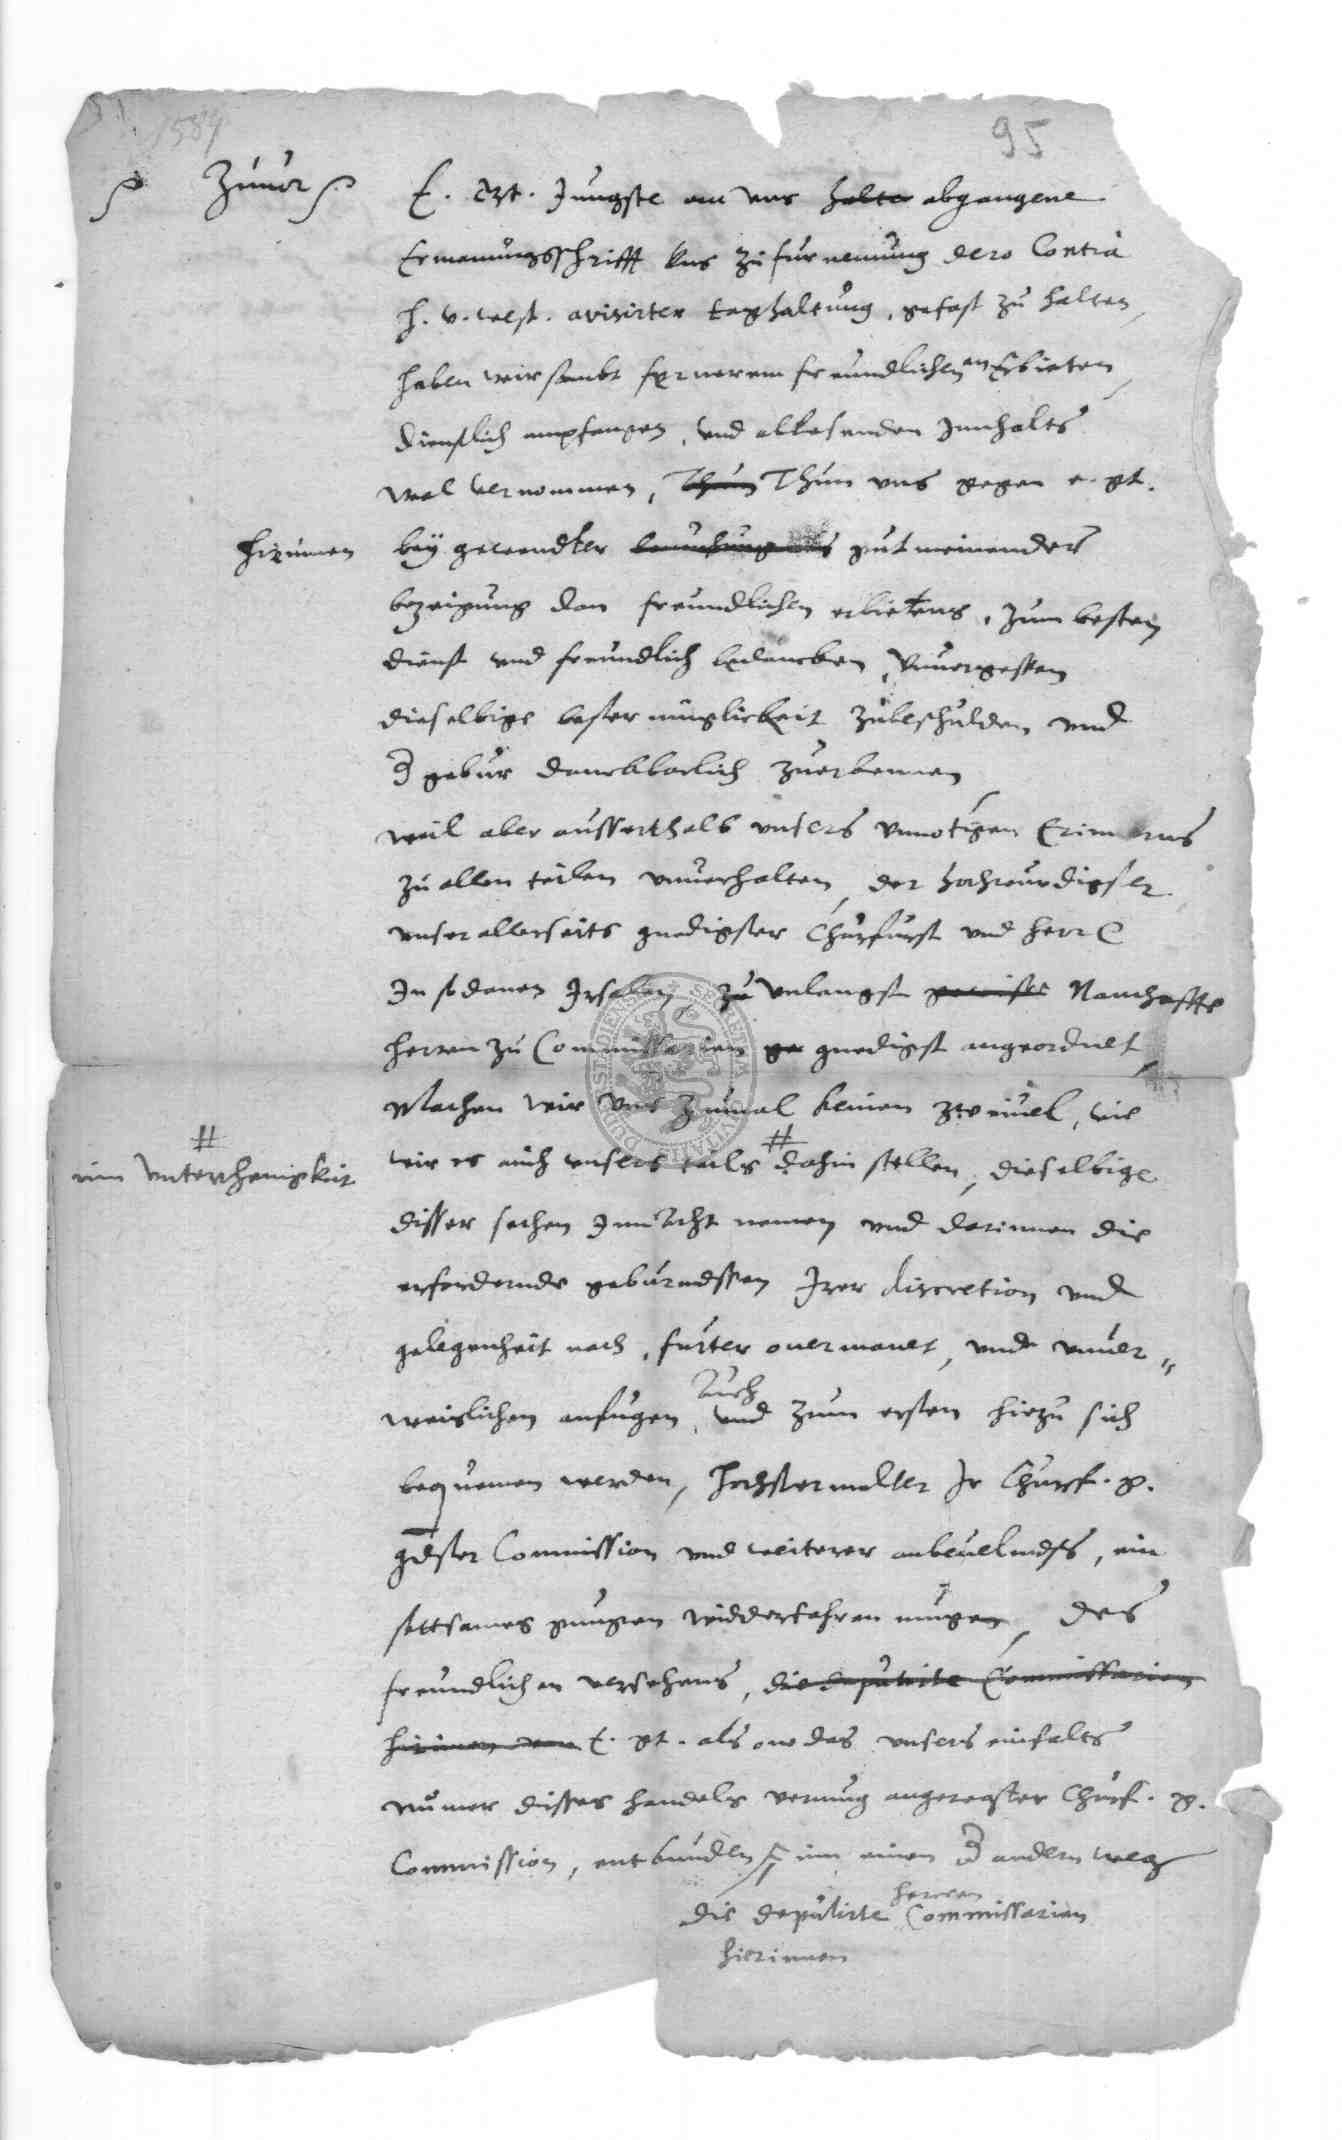 1584
95
Zuuor
E. gt. Jungste an vns halter abgangene
Ermanungsschrifft vns zu furnemung dero Contra
h. v. west. avisirter taghaltung, gefast zu halten,
haben wir sambt fernerem freundlichen Erbieten,
dienstlich empfangen, vnd ablesenden Jnnhalts
wol vernommen, Thun Thun vns gegen e. gt.
hirinnen bey gewendter gutmeinender
bezeigung dan freundlichen erbietens, zum besten
dienst vnd freundlich bedancken, Vnuergessen
dieselbige bester muglicheit zubeschulden vnd
gebur danckbarlich zuerkennen
weil aber ausserthalb vnsers vnnotigen Erinnerns
zu allen teilen vnuerhalten, der hochwurdigster
vnser allerseits gnedigster Churfurst vnd Herr
In sodanen Jrsalen zu vnlangst gewisse Namhaffte
herren zu Commissarien ge gnedigst angeordnet,
Machen wir vns zumal keinen zweiuel, wie
wir es auch vnsers teils # dahin stellen, dieselbige
# inn vnterthenigkeit
disser sachen Inn Acht nemen vnd darinnen die
erfordernde geburndssen Irer discretion vnd
gelegenheit nach, furter vnd vnuer„
weislichen anfugen, Auch vnd zum ersten hiezu sich
bequemen werden, Hochstermelter Jr Churf. g.
gdster Commission vnd weiterer anbeuelnds, ein
sattsames gnugen widderfahren mugen, Des
freundlichen versehens, die deputirte Commissarien
hirinnen E. gt. als das vnsers einfalts
nu mer disses handels vermug angeregster Churf. g.
Commission, entbunden, inn einen andern weg
die deputirte herren Commissarien
hierinnen